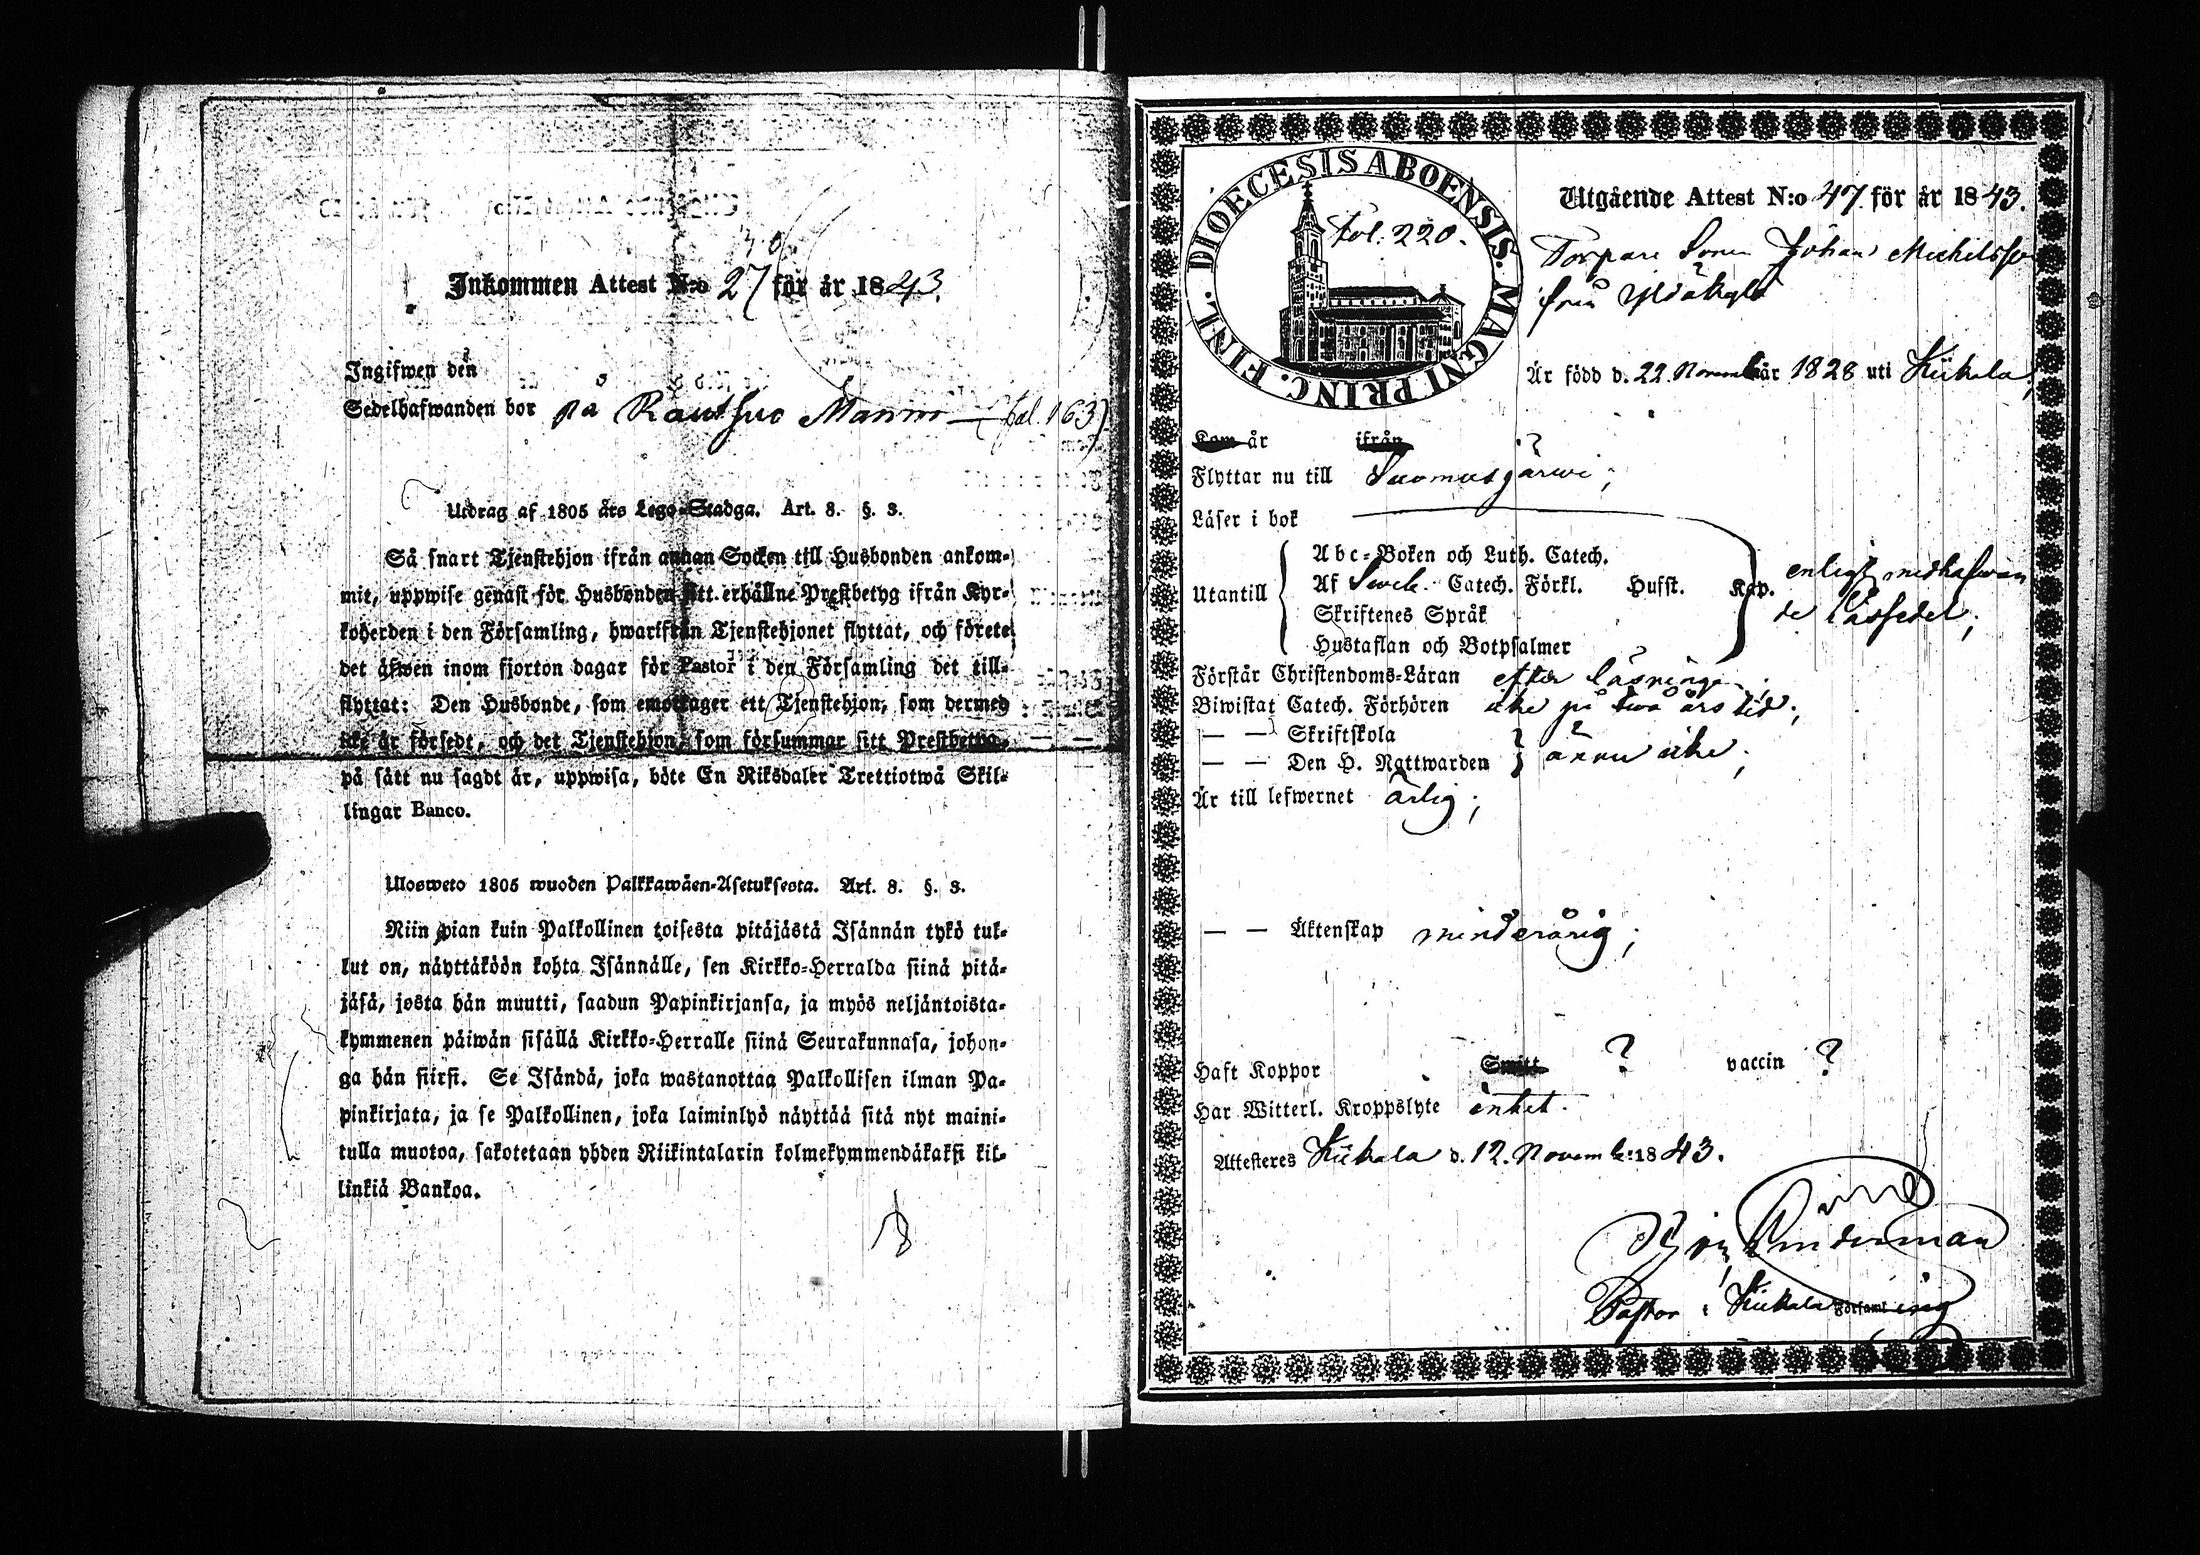 Inkommen Attest N:o 27 för år 1843.
Ingifwen den
Sedelhafwanden bor på Rautsuo Manni (fol. 163)
Utdrag af 1805 års Lego-Stadga. Art. 8. §. 3.
Så snart Tjenstehjon ifrån annan Socken till Husbonden ankom-
mit, uppwise genast för Husbonden sitt erhållne Prestbetyg ifrån Kyr-
koherden i den Församling, hwarifrån Tjenstehjonet flyttat, och förete
det äfwen inom fjorton dagar för Pastor i den Församling det till-
flyttat: Den Husbonde, som emottager ett Tjenstehjon, som dermed
icke är försedt, och det Tjenstehjon, som försummar sitt Prestbetyg,
på sätt nu sagdt är, uppwisa, böte En Riksdaler Trettiotwå Skil-
lingar Banco.
Ulosweto 1805 wuoden Palkkawäen-Asetuksesta. Art. 8. §. 3.
Niin pian kuin Palkollinen toisesta pitäjästä Isännän tykö tul-
lut on, näyttäköön kohta Isännälle, sen Kirkko-Herralda siinä pitä-
jäsä, josta hän muutti, saadun Papinkirjansa, ja myös neljäntoista-
kymmenen päiwän sisällä Kirkko-Herralle siinä Seurakunnasa, johon-
ga hän siirsi. Se Isändä, joka wastanottaa Palkollisen ilman Pa-
pinkirjata, ja se Palkollinen, joka laiminlyö näyttää sitä nyt maini-
tulla muotoa, sakotetaan yhden Riikintalarin kolmekymmendäkaksi kil-
linkiä Bankoa.
DIOECESIS ABOENSIS. MAGNI PRINC. FINL.
Fol: 220.
Utgående Attest N:o 47 för år 1843.
Torpare Sonen Johan Michelsson
från
Är född d. 22 Novemb. år 1828 uti Kiikala,
Kom år ifrån ?
Flyttar nu till Suomusjärwi;
Läser i bok
Utantill
Abc-Boken och Luth. Catech.
Af Sweb. Catech. Förkl. Husst. Kap.
Skriftenes Språk
Hustaflan och Botpsalmer
enligt medhafwan
de Läsesedel;
Förstår Christendoms-Läran efter läsningen;
Biwistat Catech. Förhören icke på twå års tid;
— — Skriftskola
— — Den H. Nattwarden ännu icke;
Är till lefwernet ärlig;
— — Äktenskap minderårig;
Haft Koppor Smitt ? vaccin ?
Har Witterl. Kroppslyte intet.
Attesteres Kiikala d. 12 Novemb: 1843.
Pastor i Kiikala Församling